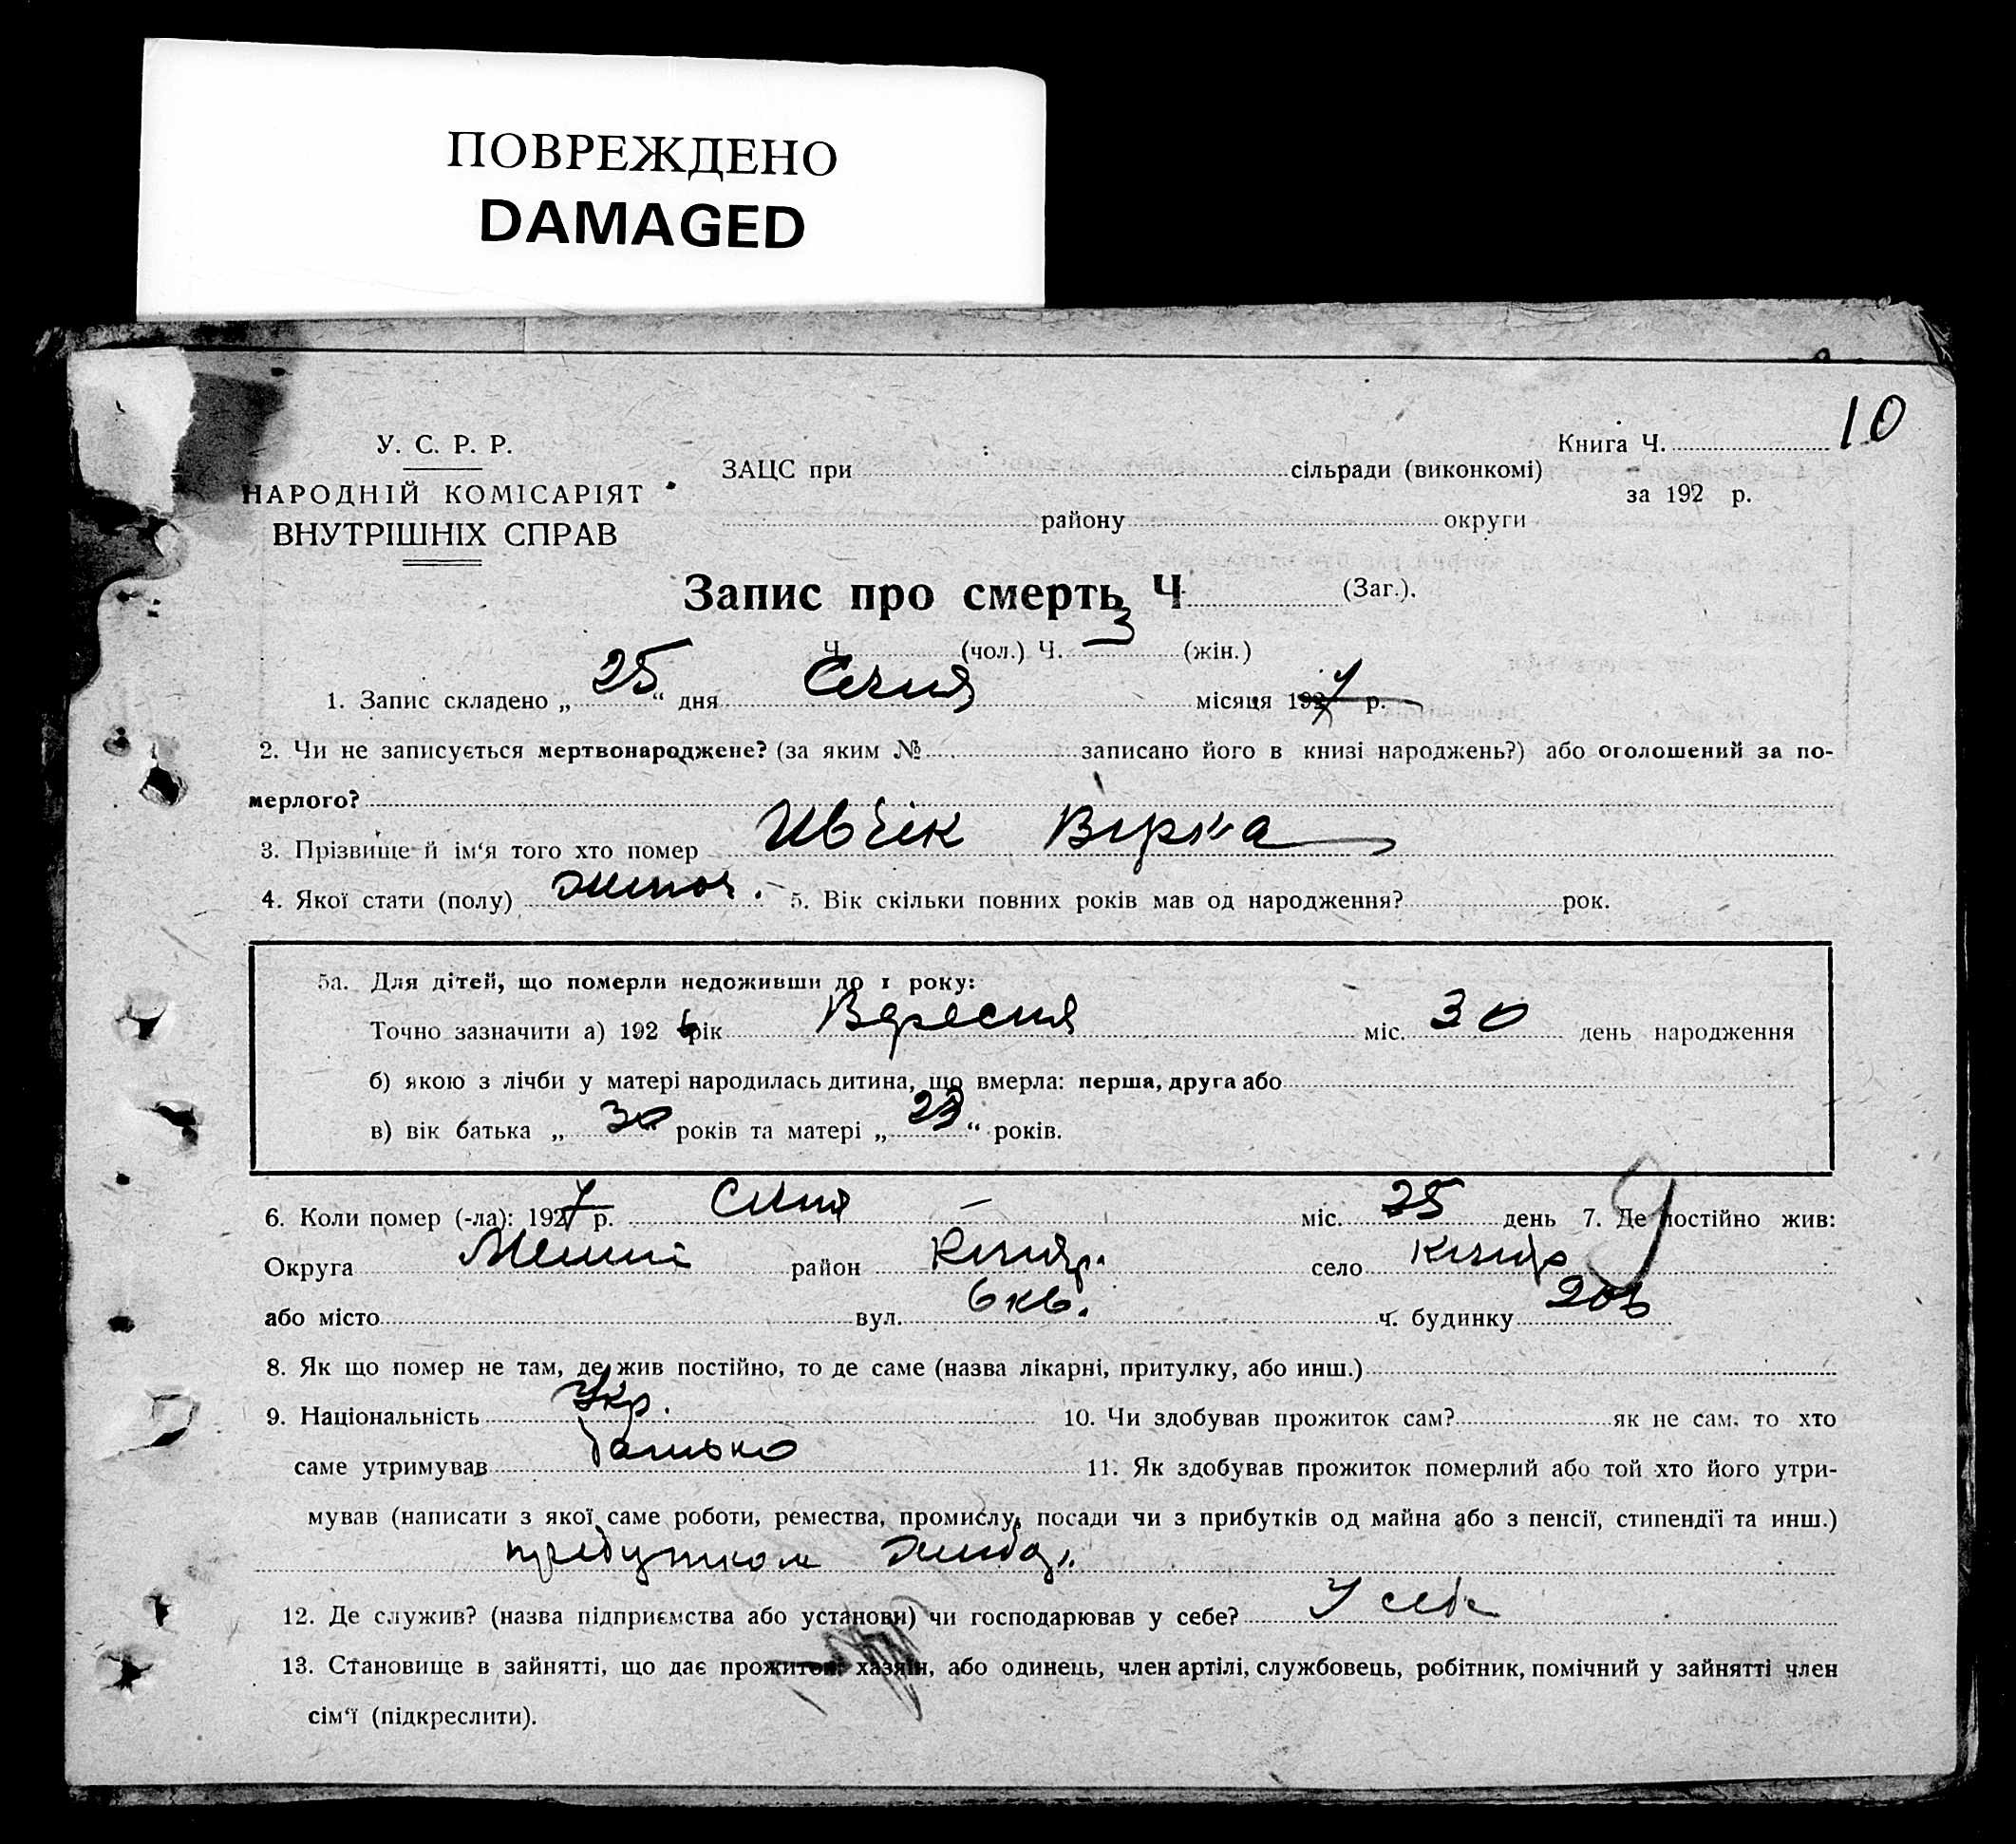 ПОВРЕЖДЕНО
DAMAGED
10
У. С. Р. Р.
НАРОДНІЙ КОМІСАРІЯТ
ВНУТРІШНІХ СПРАВ
Книга Ч.
за 192 р.
ЗАЦС при сільради (виконкомі)
району округи
Запис про смерть Ч (Заг.).
Ч. (чол.) Ч. 3 (жін.)
1. Запис складено „ 25 “ дня Січня місяця 1927 р.
2. Чи не записується мертвонароджене? (за яким № записано його в книзі народжень?) або оголошений за по-
мерлого?
3. Прізвище й ім‘я того хто помер Ивчік Вірка
4. Якої стати (полу) 5. Вік скільки повних років мав од народження? рок.
5а. Для дітей, що померли недоживши до 1 року:
Точно зазначити а) 192 6 рік Вересня міс. 30 день народження
б) якою з лічби у матері народилась дитина, що вмерла: перша, друга або
в) вік батька „ 30 “ років та матері „ “ років.
6. Коли помер (-ла): 1927 р. Січня міс. 25 день 7. Де постійно жив:
Округа район село
або місто вул. 6 кв. ч. будинку 206
8. Як що помер не там, де жив постійно, то де саме (назва лікарні, притулку, або инш.)
9. Національність Укр. 10. Чи здобував прожиток сам? як не сам, то хто
саме утримував батько 11. Як здобував прожиток померлий або той хто його утри-
мував (написати з якої саме роботи, ремества, промислу, посади чи з прибутків од майна або з пенсії, стипендії та инш.)
12. Де служив? (назва підприємства або установи) чи господарював у себе? У себе
13. Становище в зайнятті, що дає прожиток: хазяїн, або одинець, член артілі, службовець, робітник, помічний у зайнятті член
сім‘ї (підкреслити).